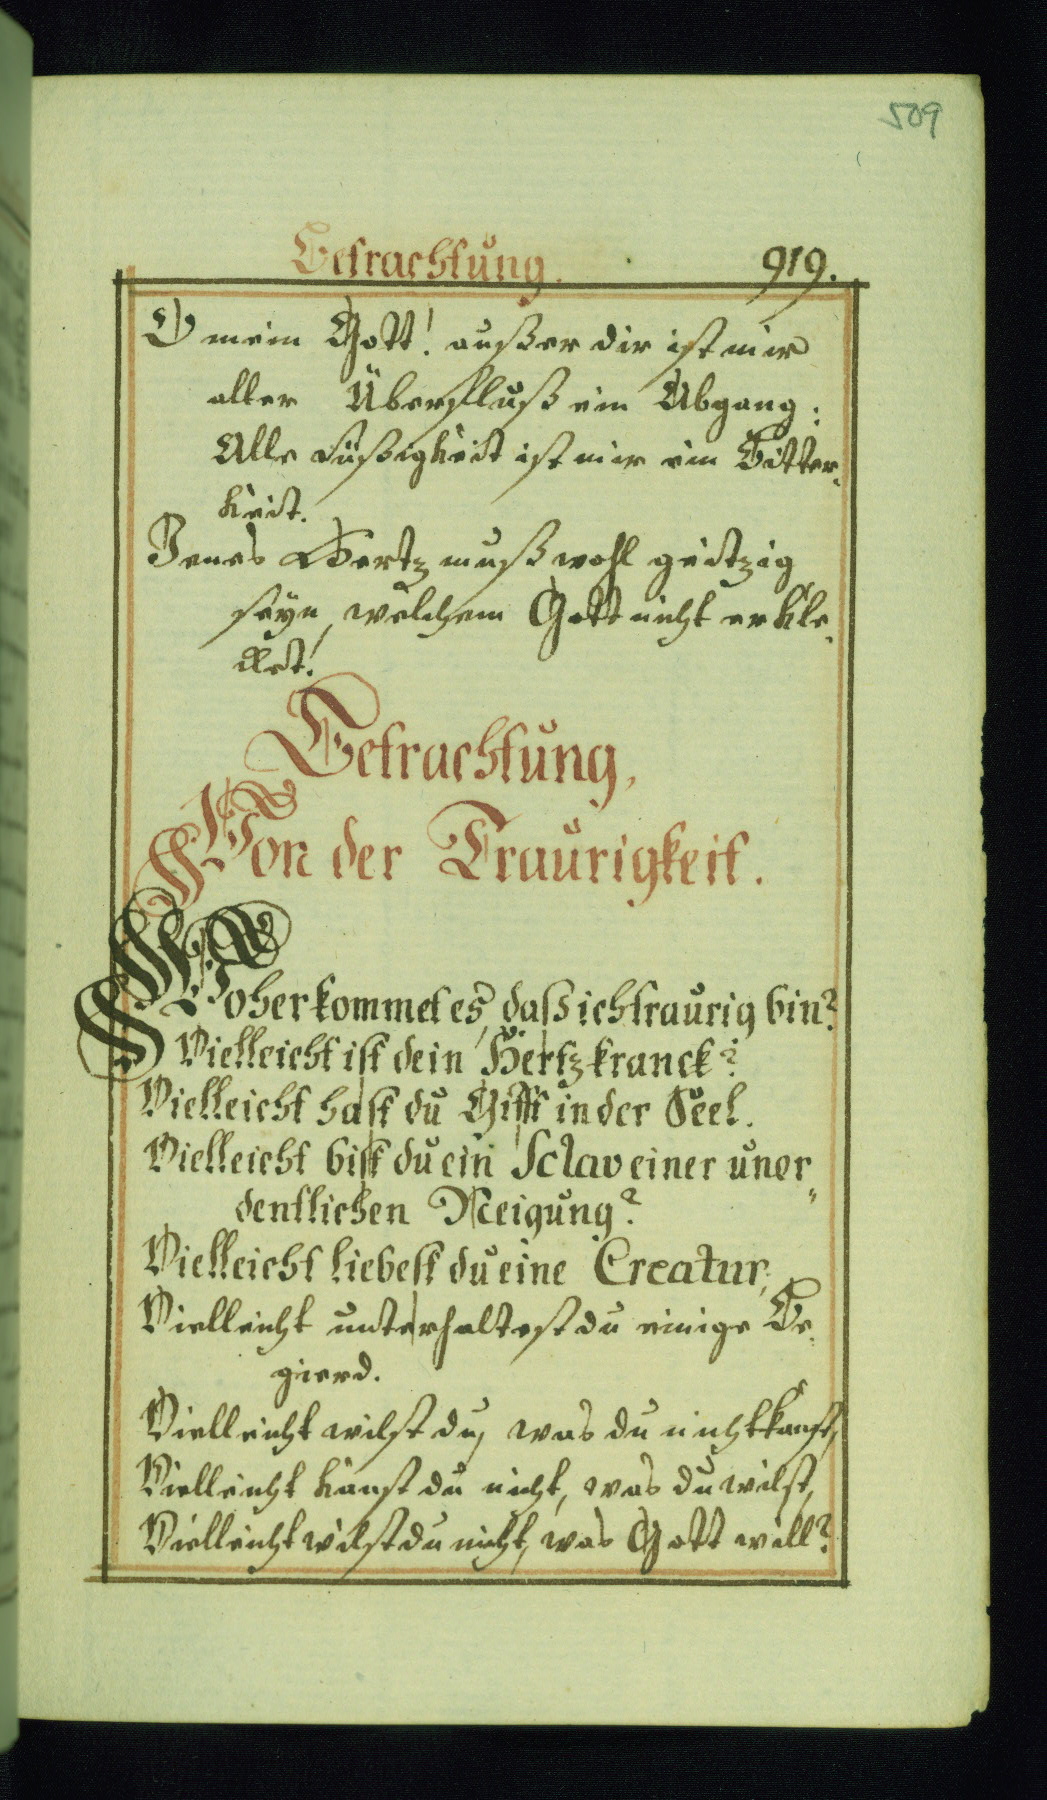 509
Betrachtung. 919.
O mein Gott! außer dir ist mir
aller Überfluß ein Abgang:
Alle süßigkeit ist mir ein Bitter-
keit.
Jenes Hertz muß wohl geitzig
seyn, welchem Gott nicht erkle-
cket!
Betrachtung,
Von der Traurigkeit.
Woher kommet es, daß ich traurig bin?
Vielleicht ist dein Hertz kranck?
Vielleicht hast du Gifft in der Seel.
Vielleicht bist du ein Sclav einer unor-
dentlichen Neigung?
Vielleicht liebest du eine Creatur,
Vielleicht unterhaltest du einige Be-
gierd.
Vielleicht wilst du, was du nicht kanst,
Vielleicht kanst du nicht, was du wilst,
Vielleicht wilst du nicht, was Gott will?